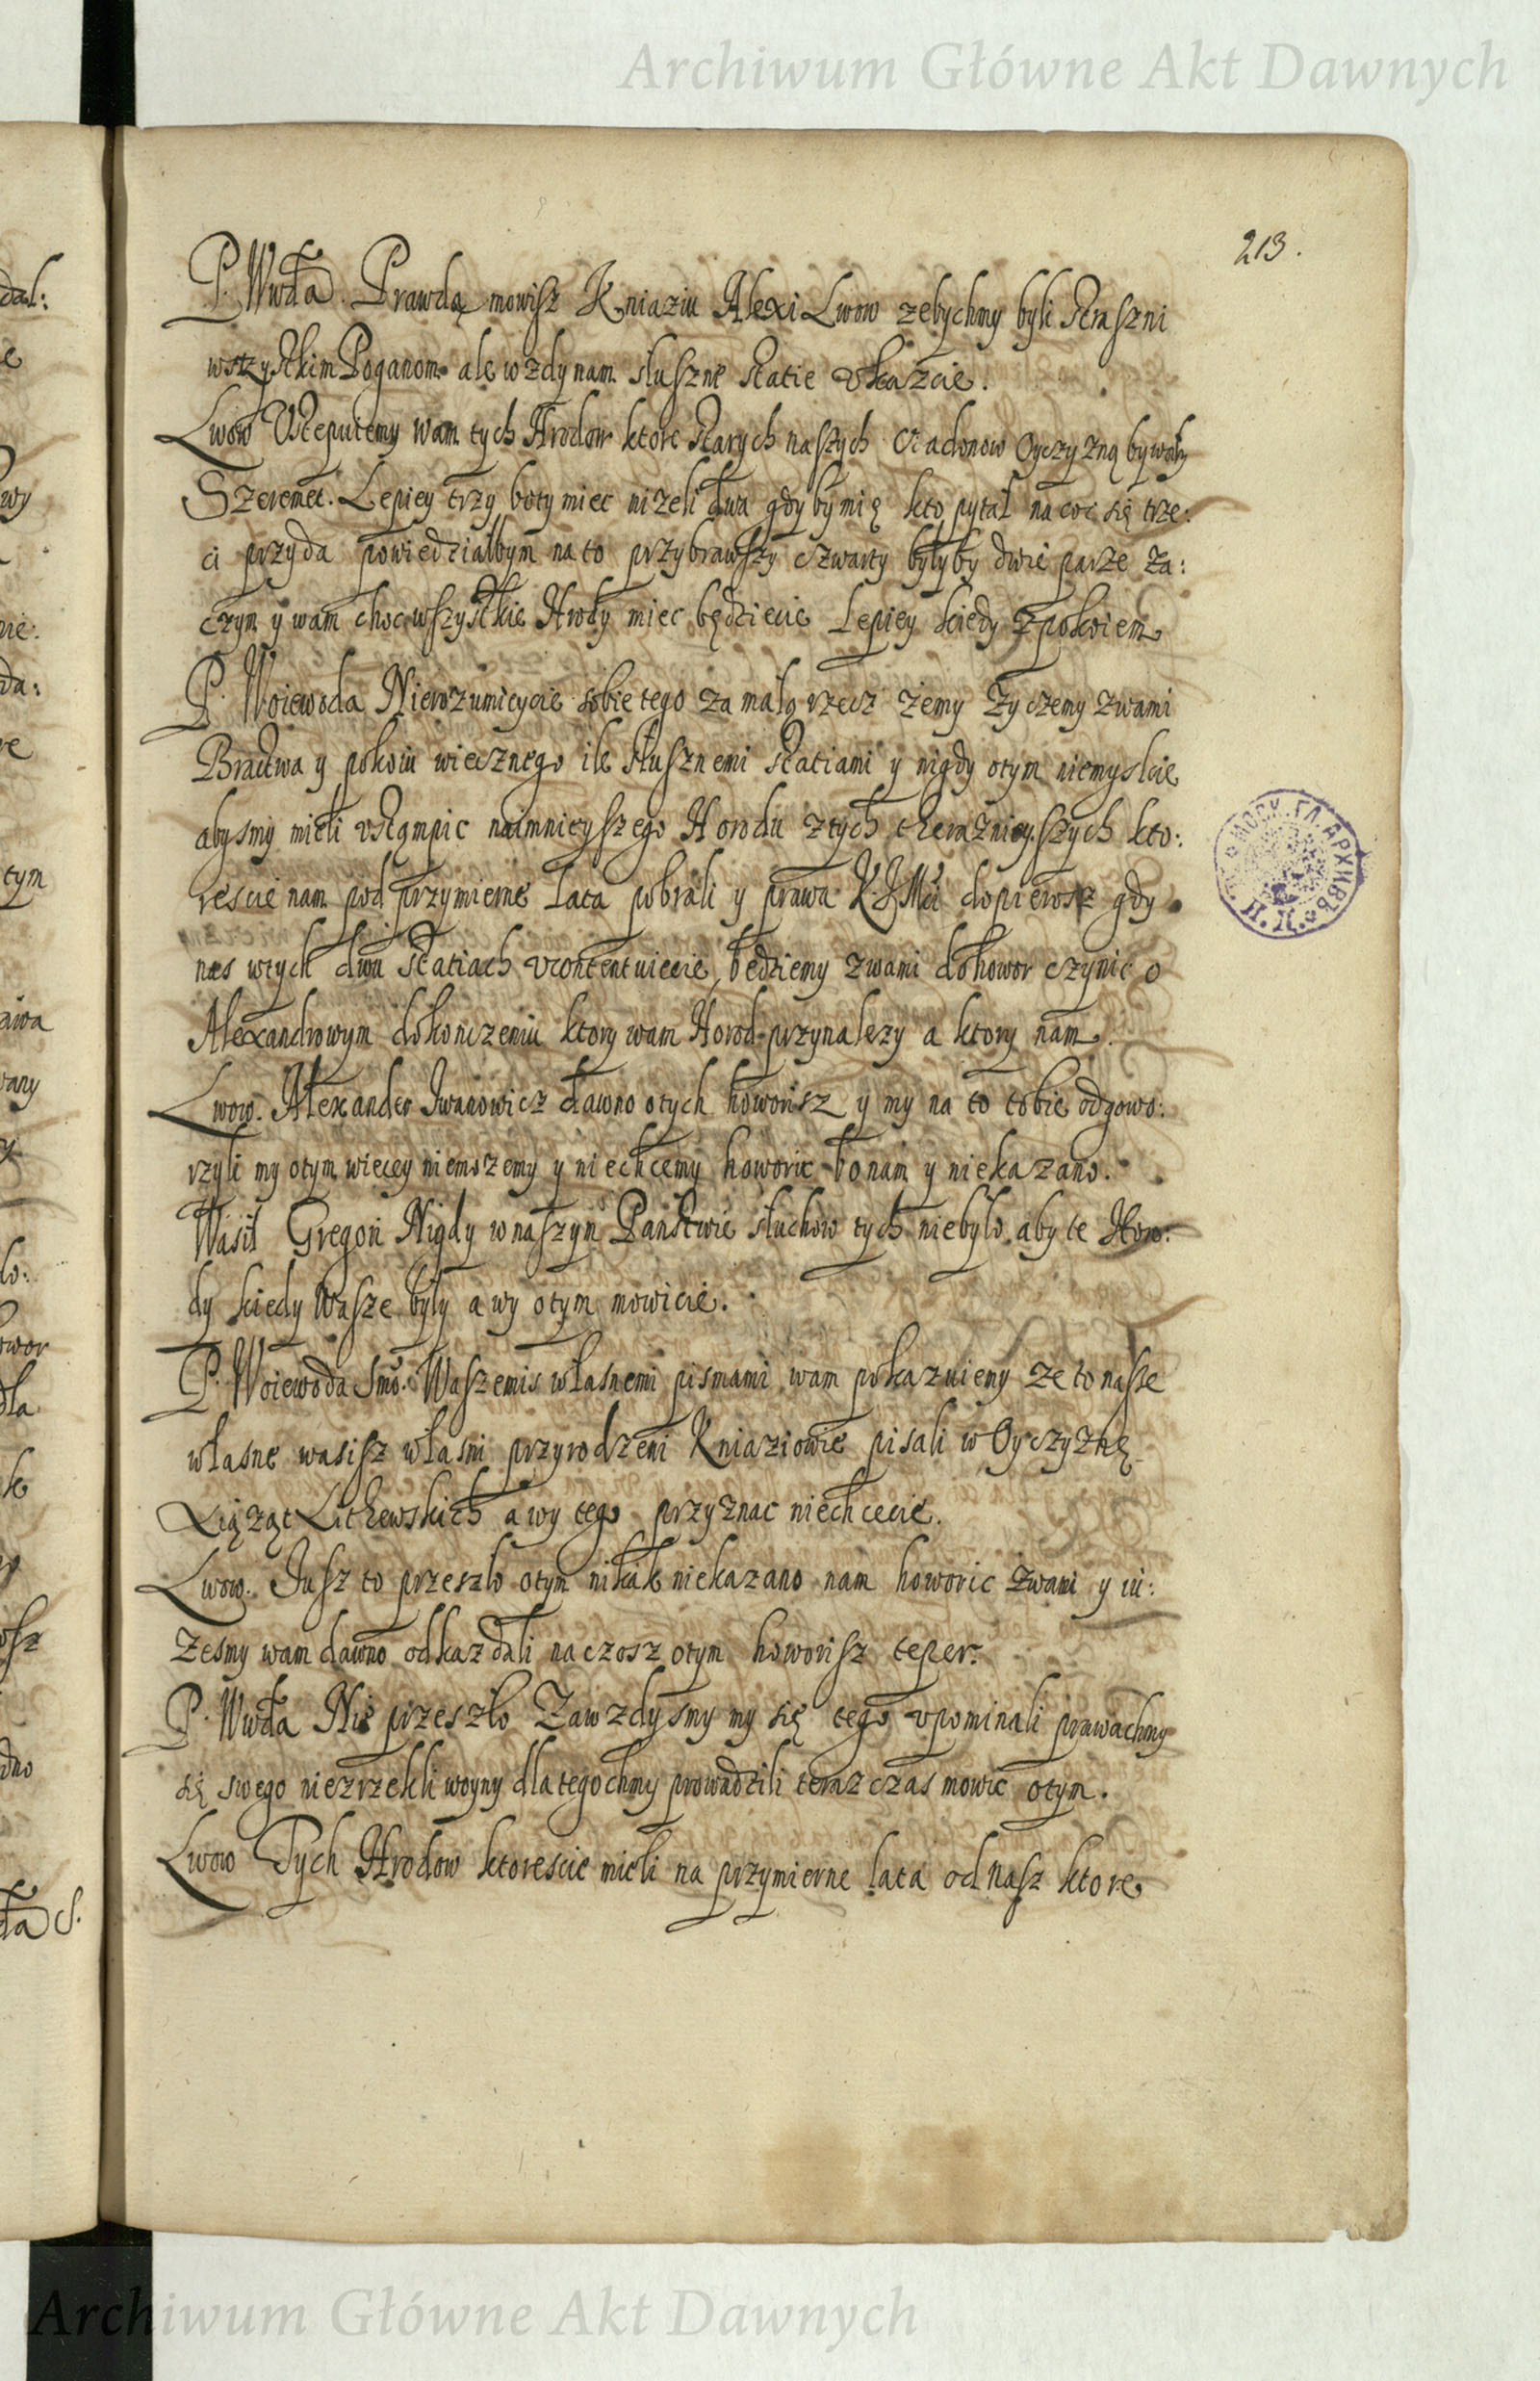 Archiwum Główne Akt Dawnych
213.
P. Wwda. Prawdą mowisz Kniaziu Alexi Lwow zebychmy byli straszni
wszystkim Poganom ale wzdy nam słuszne statie vkazcie.
Lwow Vstepuiemy wam tych Hrodow ktore starych naszych Ojczyzną bywały
Szeremet. Lepiey trzy boty miec nizeli dwa gdyby mię kto pytał na coc się trze:
ci przyda powiedziałbym na to przybrawszy czwarty byłyby dwie parze za:
czym y wam choc wszystkie Hrody miec będziecie Lepiey kiedy z pokoiem
P. Woiewoda Nierozumieycie sobie tego za małą rzecz żemy życzemy zwami
Bractwa y pokoiu wiecznego ile słusznemi statiami y nigdy otym niemyslcie
abysmy mieli vstąmpic naimnieyszego Horodu ztych theraznieyszych kto:
rescie nam pod przymierne lata pobrali y prawa K. J Mci dopierosz gdy
nas wtych dwu statiach vcontentuiecie, będziemy zwami dohowor czynic o
Alexandrowym dokonczeniu ktory wam Horod przynalezy a ktory nam.
Lwow. Alexander Iwanowicz dawno otych howorisz y my na to tobie odgowo:
rzyli my otym wiecey niemozemy y niechcemy howoric bo nam y niekazano.
Wasil Gregori Nigdy wnaszym Panstwie słuchow tych niebyło aby te Horo:
dy kiedy Wasze były a wy otym mowicie.
P. Woiewoda Smo. Waszemis własnemi pismami wam pokazuiemy ze to nasze
własne wasisz własni przyrodzeni Kniaziowie pisali w Oyczyznę
Xiążąt Lithewskich a wy tego przyznac niechcecie.
Lwow. Jusz to przeszło otym nikak niekazano nam howoric zwami y iu:
zesmy wam dawno odkazdali na czosz otym howorisz teper.
P. Wwda Nie przeszło Zawzdysmy my się tego vpominali prawachmy
się swego niezrzekli woyny dla tegochmy prowadzili teraz czas mowic otym.
Lwow Tych Hrodow ktorescie mieli na przymierne lata od nasz ktore
Archiwum Główne Akt Dawnych